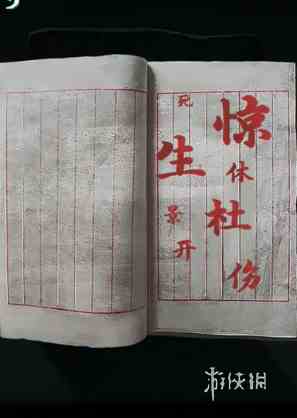 惊
休
杜
伤
死
生
景
开
游侠网